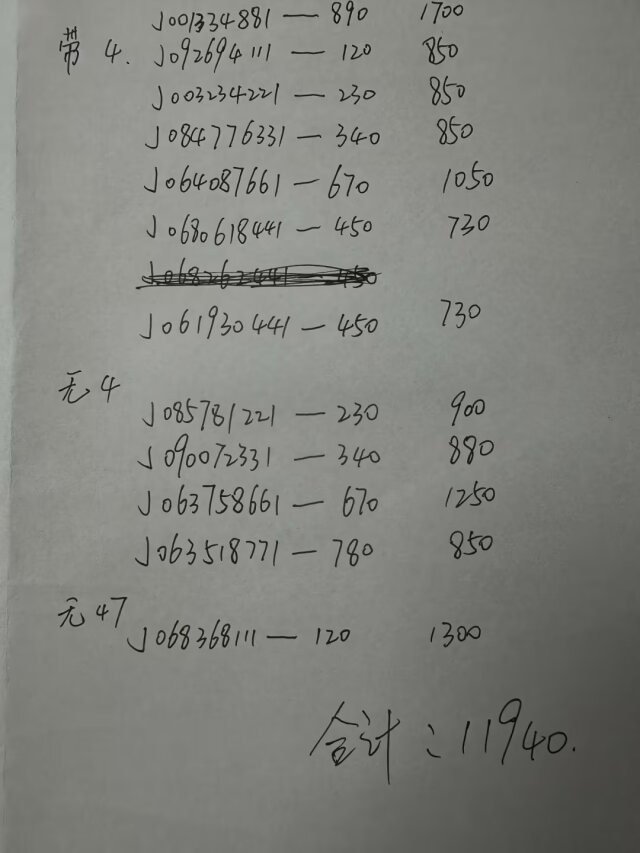 J001334881 — 890 1700
带4. J092694111 — 120 850
J003234221 — 230 850
J084776331 — 340 850
J064087661 — 670 1050
J0680618441 — 450 730
J068262441 — 450
J061930441 — 450 730
无4
J085781221 — 230 900
J090072331 — 340 880
J063758661 — 670 1250
J063518771 — 780 850
无47
J068368111 — 120 1300
合计:11940.